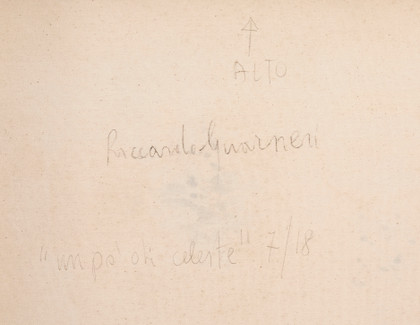 ↑
ALTO
Riccardo Guarneri
"un po' di celeste" 7/18